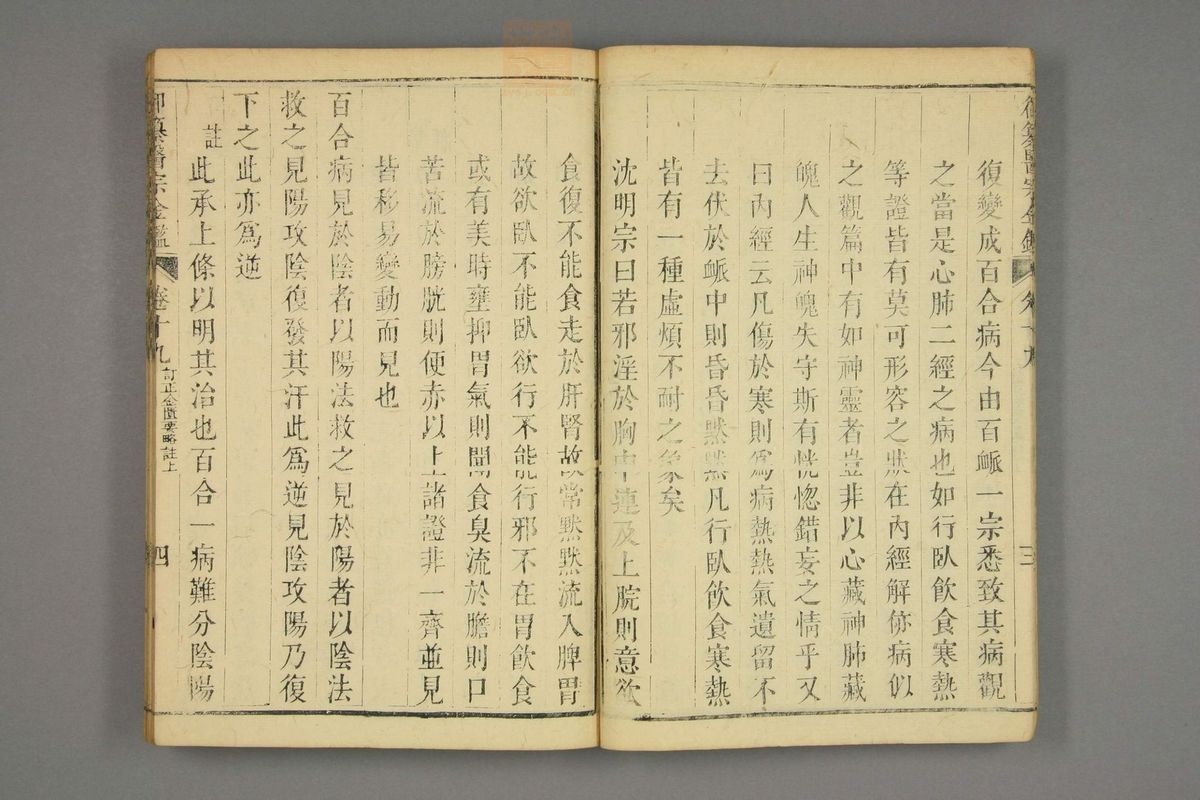 御纂醫宗金鑑 卷十九 三
復變成百合病今由百衇一宗悉致其病觀
之當是心肺二經之病也如行臥飲食寒熱
等證皆有莫可形容之狀在內經解㑊病似
之觀篇中有如神靈者豈非以心藏神肺藏
魄人生神魄失守斯有恍惚錯妄之情乎又
曰內經云凡傷於寒則爲病熱熱氣遺留不
去伏於衇中則昏昏默默凡行臥飲食寒熱
皆有一種虛煩不耐之象矣
沈明宗曰若邪淫於胸中連及上脘則意欲
食復不能食走於肝腎故常默默流入脾胃
故欲臥不能臥欲行不能行邪不在胃飲食
或有美時壅抑胃氣則聞食臭流於膽則口
苦流於膀胱則便赤以上諸證非一齊並見
皆移易變動而見也
百合病見於陰者以陽法救之見於陽者以陰法
救之見陽攻陰復發其汗此爲逆見陰攻陽乃復
下之此亦爲逆
註此承上條以明其治也百合一病難分陰陽
御纂醫宗金鑑 卷十九 訂正金匱要略註上 四